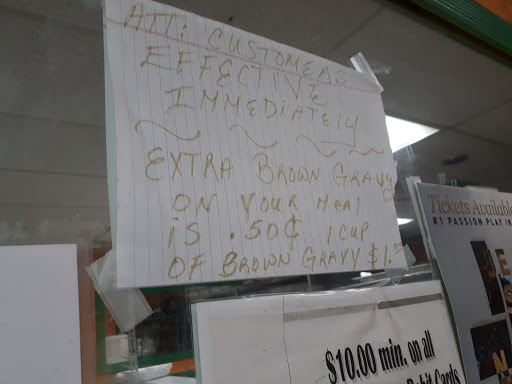 ATT: CUSTOMERS
EFFECTIVE
IMMEDIATELY
EXTRA BROWN GRAVY
ON YOUR MEAL
IS .50¢ 1 CUP
OF BROWN GRAVY $1.
Tickets Available
#1 PASSION PLAY IN
$10.00 min. on all
Debit Cards